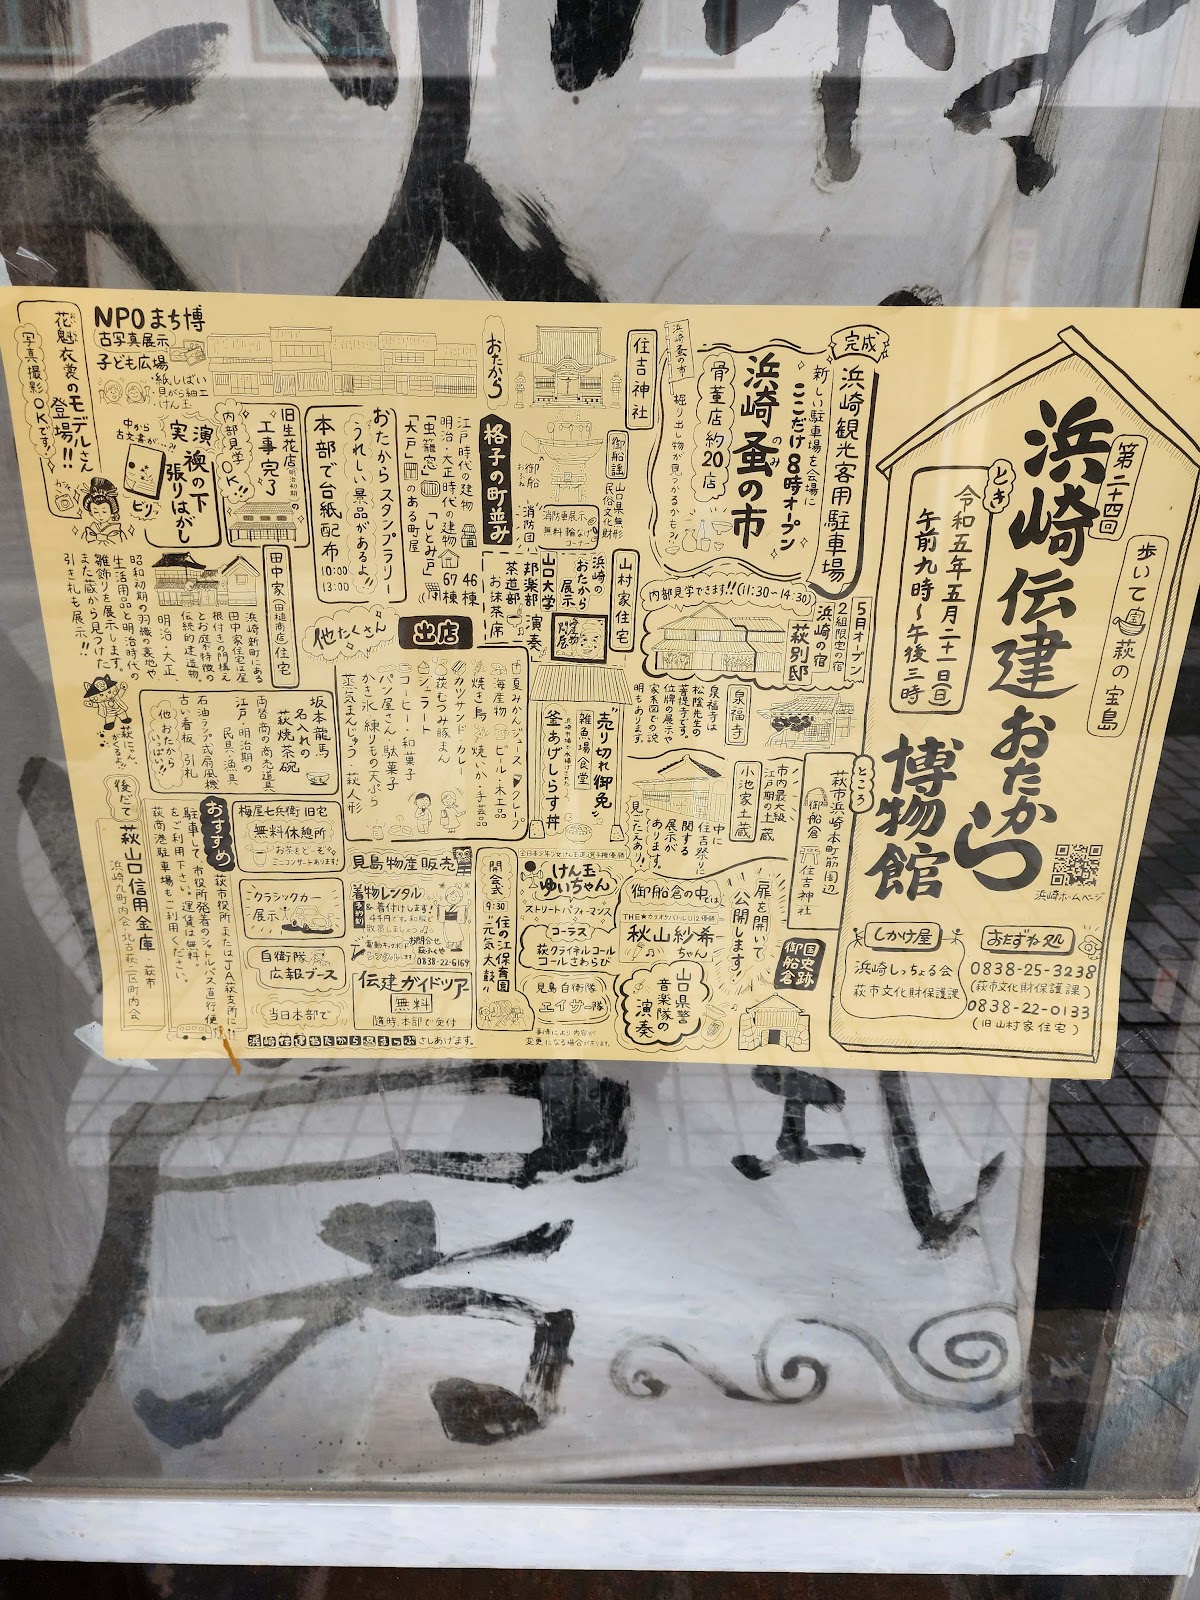 第二十四回
歩いて宝萩の宝島
浜崎伝建おたから
博物館
とき
令和五年五月二十一日(日)
午前九時〜午後三時
ところ
萩市浜崎本町筋周辺
御船倉
住吉神社
浜崎ホームページ
しかけ屋
浜崎しっちょる会
萩市文化財保護課
おたずね処
0838-25-3238
(萩市文化財保護課)
0838-22-0133
(旧山村家住宅)
完成
浜崎観光客用駐車場
新しい駐車場を会場に
ここだけ8時オープン
浜崎蚤の市
のみ
骨董店約20店
掘り出し物が見つかるかも!
浜崎蚤の市
5月オープン
2組限定の宿
浜崎の宿
萩別邸
内部見学できます!!(11:30〜14:30)
泉福寺
泉福寺は
松陰先生の
菩提寺です。
位牌の展示や
家系図での説
明もあります。
小池家土蔵
市内最大級
江戸期の土蔵
中に
住吉祭りに
関する
展示が
あります。
見ごたえあり!
国史跡
御船倉
扉を開いて
公開します!
御船倉の中では
THE★カラオケバトルU12優勝
秋山紗希
ちゃん
山口県警
音楽隊の
演奏
住吉神社
おたから
御船謡
山口県無形
民俗文化財
御船
消防団
消防車展示
無料輪なげ
コーナー
山村家住宅
浜崎の
おたから
展示
山口大学
邦楽部演奏
茶道部
お抹茶席
格子の町並み
江戸時代の建物
46棟
明治・大正時代の建物
67棟
「虫籠窓」
「しとみ戸」
「大戸」
のある町屋
おたからスタンプラリー
うれしい景品があるよ!!
本部で台紙配布
10:00
13:00
売り切れ御免
雑魚場食堂
釜あげしらす丼
出店
他たくさん
夏みかんジュース
クレープ
海産物
ビール・木工品
焼き鳥
焼いか・手芸品
カツサンド・カレー
萩むつみ豚まん
ジェラート
コーヒー・和菓子
パン屋さん・駄菓子
かき氷 練りもの天ぷら
蒸気まんじゅう・萩人形
けん玉
ゆいちゃん
ストリートパフォーマンス
コーラス
萩クライネルコール
コールさわらび
見島自衛隊
エイサー隊
事情により内容が
変更になる場合があります。
開会式
9:30
住の江保育園
"元気太鼓"
見島物産販売
着物レンタル
&着付けします!
4千円です。和服で
散策しましょう
電動キックボード
レンタルします
お問合せ
0838-22-6169
伝建ガイドツアー
無料
随時 本部で受付
浜崎伝建おたから屋まっぷさしあげます。
NPOまち博
古写真展示
子ども広場
・紙しばい
・貝がら細工
・けん玉
花魁衣裳のモデルさん
登場!!
写真撮影OKです!
演
実
襖の下
張りはがし
中から
古文書が!!
ビリ
旧生花店(明治初期)の
工事完了
内部見学OK!!
田中家(田種商店)住宅
浜崎新町にある
田中家住宅は玉屋
根付きの門構え
とお庭が特徴の
伝統的建造物。
明治・大正・
昭和初期の羽織の裏地や
生活用品と明治時代の
雛飾りを展示します。
また蔵から見つけた
引き札も展示!!
坂本龍馬
名入れの
萩焼茶碗
両替商の商売道具
江戸・明治期の
民具・漁具
石油ランプ式扇風機
古い看板 引札
他おたから
いっぱい!!
萩にゃん。
がくるよ!
梅屋七兵衛 旧宅
無料休憩所
お茶をどーぞ
ミニコンサートあります!
クラシックカー
展示
自衛隊
広報ブース
当日本部で
おすすめ
萩市役所またはJA萩支所に
駐車して、市役所発着のシャトルバス直行便
をご利用下さい。運賃は無料。
萩商港駐車場もご利用ください。
後だて
萩山口信用金庫
萩市
浜崎九町内会 北古萩一区町内会